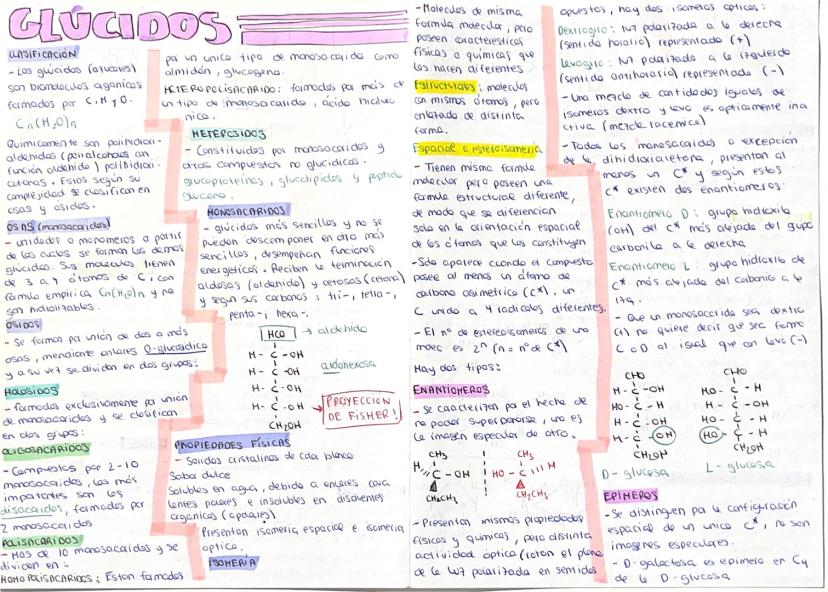 GLÚCIDOS
CLASIFICACIÓN
- Los glúcidos (azúcares)
son biomoleculas organicas
formadas por C, H y O.
Cn(H₂O)n
Quimicamente son polihidroxi-
aldehidos (polialcoholes con
función aldehido) polihidroxi-
cetonas. Estos según su
complejidad se clasifican en
osas y ósidos.
OSAS (monosacaridos)
- unidades o monomeros a partir
de los cuales se forman los demas
glúcidos. Sus moleculas tienen
de 3 a 7 átomos de C, con
formula empirica Cn(H₂O)n y no
son hidrolizables.
ÓSIDOS
- Se forman por unión de dos o más
osas, mendiante enlaces O-glucosídico
y a su vez se dividen en dos grupos:
HOLÓSIDOS
- formados exclusivamente por unión
de monosacaridos y se clasifican
en dos grupos:
OLIGOSACARIDOS
- Compuestos por 2-10
monosacaridos, los más
importantes son los
disacaridos, formados por
2 monosacaridos
POLISACARIDOS
- Mas de 10 monosacaridos y se
dividen en:
HOMOPOLISACARIDOS: Estan formados
por un unico tipo de monosacarido como
almidón, glucogeno.
HETEROPOLISACARIDO: formados por más de
un tipo de monosacarido, ácido hialuro
nico.
HETEROSIDOS
- Constituidos por monosacaridos y
otros compuestos no glucidicos.
glucoproteinas, glucolipidos y peptido
glucano.
MONOSACARIDOS
- glúcidos más sencillos y no se
pueden descomponer en otro más
sencillos, desempeñan funciones
energeticas. Reciben la terminación
aldosas (aldehido) y cetosas (cetona)
y según sus carbonos: tri-, tetra-,
pento-, hexa-.
HCO → aldehido
H - C - OH
aldohexosa
H - C - OH
H - C - OH
H - C - OH
CH₂OH
PROYECCION
DE FISHER!
PROPIEDADES FÍSICAS
- Solidos cristalinos de color blanco
Sabor dulce
Solubles en agua, debido a enlaces cova
lentes polares e insolubles en disolventes
organicos (apolares)
Presentan isomeria espacial e isomeria
optica.
ISOMERIA
- Moleculas de misma
formula molecular, pero
poseen caracteristicas
físicas o químicas que
los hacen diferentes
Estructurales: moleculas
con mismos átomos, pero
enlazado de distinta
forma.
Espacial o esteroisomeria
- Tienen misma formula
molecular pero poseen una
formula estructural diferente,
de modo que se diferencian
solo en la orientación espacial
de los átomos que los constituyen
- Solo aparece cuando el compuesto
posee al menos un átomo de
carbono asimetrico (C*), un
C unido a 4 radicales diferentes.
- El nº de estereoisomeros de una
molec es 2ⁿ (n = nº de C*)
Hay dos tipos:
ENANTIOMEROS
- se caracterizan por el hecho de
no poder superponerse, uno es
la imagen especular de otro.
CH₃ CH₃
H C - OH HO - C H
CH₂CH₃ CH₂CH₃
- Presentan mismas propiedades
físicas y químicas, pero distinta
actividad óptica (rotan el plano
de la luz polarizada en sentidos
opuestos, hay dos isomeros opticos:
Dextrogiro: luz polarizada a la derecha
(sentido horario) representado (+)
Levogiro: luz polarizada a la izquierda
(sentido antihorario) representado (-)
- Una mezcla de cantidades iguales de
isomeros dextro y levo es opticamente ina
ctiva (mezcla racemica)
- Todos los monosacaridos a excepcion
de la dihidroxiacetona, presentan al
menos un C* y según estos
C* existen dos enantiomeros:
Enantiomero D: grupo hidroxilo
(OH) del C* más alejado del grupo
carbonilo a la derecha
Enantiomero L: grupo hidroxilo de
C* más alejado del carbonilo a la
izq.
- Que un monosacarido sea dextro
(+) no quiere decir que sea forma
L o D al igual que con levo (-)
CHO CHO
H - C - OH HO - C - H
HO - C - H H - C - OH
H - C - OH HO - C - H
H - C - OH HO - C - H
CH₂OH CH₂OH
D - glucosa L - glucosa
EPÍMEROS
- Se distinguen por la configuración
espacial de un unico C*, no son
imagenes especulares.
- D-galactosa es epimero en C₄
de la D-glucosa